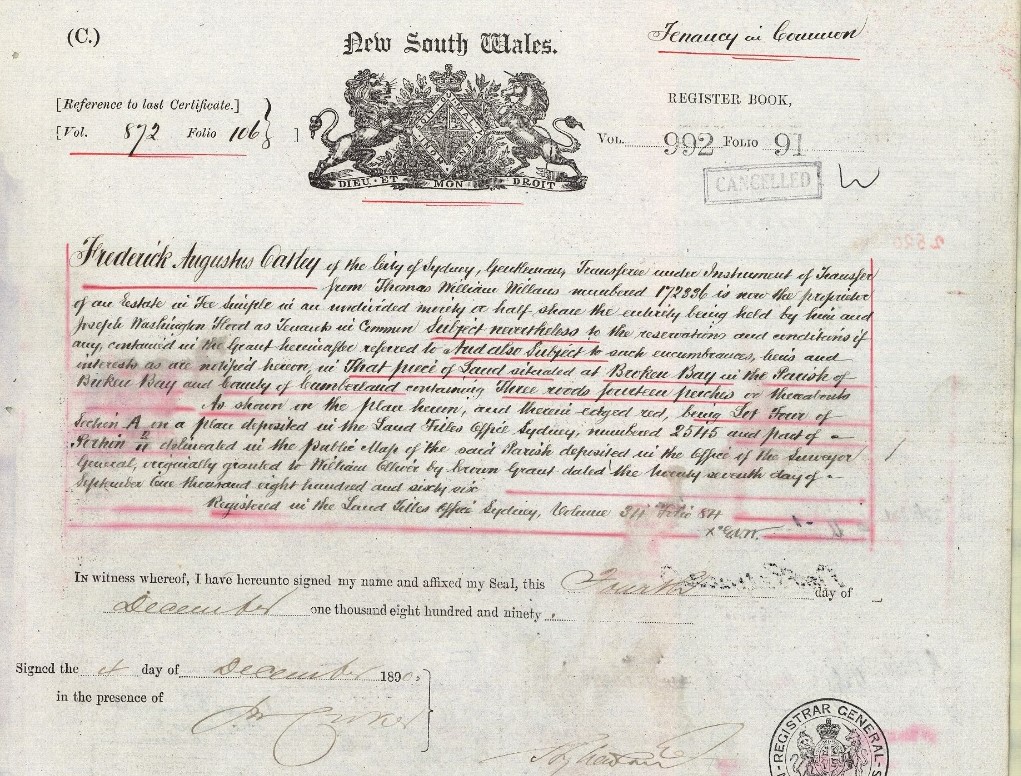 (C.)
New South Wales.
Tenancy in Common
[Reference to last Certificate.]
[Vol. 872 Folio 106 ]
REGISTER BOOK,
VOL. 992 FOLIO 91
DIEU ET MON DROIT
CANCELLED
Frederick Augustus Oatley of the City of Sydney, Gentleman, Transferee under Instrument of Transfer
from Thomas William Willans numbered 172336 is now the proprietor
of an Estate in Fee Simple in an undivided moiety or half share the entirety being held by him and
Joseph Washington Hord as Tenants in Common Subject nevertheless to the reservations and conditions if
any, contained in the Grant hereinafter referred to And also Subject to such encumbrances, liens and
interests as are notified hereon, in That piece of Land situated at Broken Bay in the Parish of
Broken Bay and County of Cumberland containing Three roods fourteen perches or thereabouts
As shewn on the plan hereon, and therein edged red, being Lot Four of
Section A on a plan deposited in the Land Titles Office Sydney, numbered 2545 and part of
Portion 11 delineated in the public Map of the said Parish deposited in the Office of the Surveyor
General, originally granted to William Oliver by Crown Grant dated the twenty seventh day of
September One thousand eight hundred and sixty six
Registered in the Land Titles Office Sydney, Volume 34 Folio 84
IN witness whereof, I have hereunto signed my name and affixed my Seal, this Fourth day of
December one thousand eight hundred and ninety
Signed the 4 day of December 1890.
in the presence of
REGISTRAR GENERAL